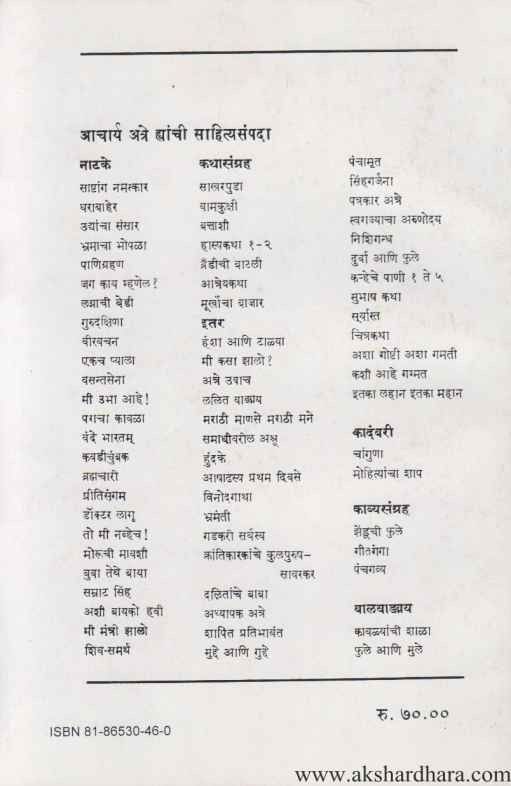 आचार्य अत्रे ह्यांची साहित्यसंपदा
नाटके
साष्टांग नमस्कार
घराबाहेर
उद्यांचा संसार
भ्रमाचा भोपळा
पाणिग्रहण
जग काय म्हणेल?
लग्नाची बेडी
गुरुदक्षिणा
वीरवचन
एकच प्याला
वसन्तसेना
मी उभा आहे!
पराचा कावळा
वंदे भारतम्
कवडीचुंबक
ब्रह्मचारी
प्रीतिसंगम
डॉक्टर लागू
तो मी नव्हेच!
मोरूची मावशी
बुवा तेथे बाया
सम्राट सिंह
अशी बायको हवी
मी मंत्री झालो
शिव-समर्थ
कथासंग्रह
साखरपुडा
वामकुक्षी
बत्ताशी
हास्यकथा १-२
ब्रँडीची बाटली
आत्रेयकथा
मूर्खांचा बाजार
इतर
हंशा आणि टाळ्या
मी कसा झालो?
अत्रे उवाच
ललित वाङ्मय
मराठी माणसे मराठी मने
समाधीवरील अश्रू
हुंदके
आषाढस्य प्रथम दिवसे
विनोदगाथा
भ्रमंती
गडकरी सर्वस्व
क्रांतिकारकांचे कुलपुरुष–
सावरकर
दलितांचे बाबा
अध्यापक अत्रे
शापित प्रतिभावंत
मुद्दे आणि गुद्दे
पंचामृत
सिंहगर्जना
पत्रकार अत्रे
स्वराज्याचा अरुणोदय
निशिगन्ध
दुर्वा आणि फुले
कऱ्हेचे पाणी १ ते ५
सुभाष कथा
सूर्यास्त
चित्रकथा
अशा गोष्टी अशा गमती
कशी आहे गम्मत
इतका लहान इतका महान
कादंबरी
चांगुणा
मोहित्यांचा शाप
काव्यसंग्रह
झेंडूची फुले
गीतगंगा
पंचगव्य
बालवाङ्मय
कावळ्यांची शाळा
फुले आणि मुले
रु. ७०.००
ISBN 81-86530-46-0
www.akshardhara.com